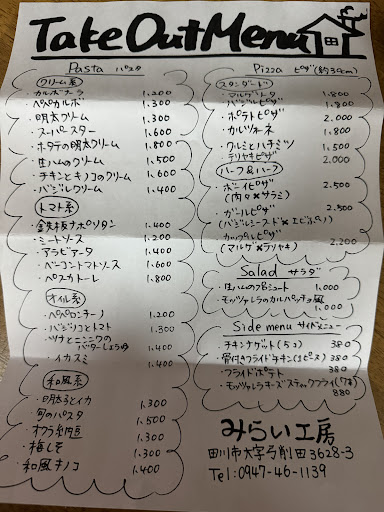 Take Out Menu
Pasta パスタ
クリーム系
・カルボナーラ 1.200
・ペペカルボ 1.300
・明太クリーム 1.300
・スーパースター 1.600
・ホタテの明太クリーム 1.800
・生ハムのクリーム 1.500
・チキンとキノコのクリーム 1.600
・バジルクリーム 1.400
トマト系
・鉄板ナポリタン 1.400
・ミートソース 1.200
・アラビアータ 1.400
・ベーコントマトソース 1.600
・ペスカトーレ 1.800
オイル系
・ペペロンチーノ 1.200
・バジリコとトマト 1.300
・ツナとニンニクの
バターしょうゆ 1.400
・イカスミ 1.400
和風系
・明太子とイカ 1.300
・旬のパスタ 1.500
・オクラ納豆 1.300
・梅しそ 1.300
・和風キノコ 1.400
Pizza ピザ(約30cm)
スタンダード
・マルゲリータ 1.800
・バジルピザ 1.800
・ポテトピザ 2.000
・カルツォーネ 1.800
・クルミとハチミツ 1.500
・テリヤキピザ 2.000
ハーフ&ハーフ
・ボーイピザ 2.500
(肉々×サラミ)
・ガールピザ 2.500
(バジルシーフード×エビふりソ)
・カップルピザ 2.200
(マルゲ×テリヤキ)
Salad サラダ
・生ハムのアボシュート 1.000
・モッツァレラのカルパッチョ風 1.000
Side menu サイドメニュー
・チキンナゲット(5コ) 380
・骨付きフライドチキン(1ピース) 380
・フライドポテト 380
・モッツァレラチーズスティックフライ(7本) 880
みらい工房
田川市大字弓削田3628-3
Tel:0947-46-1139